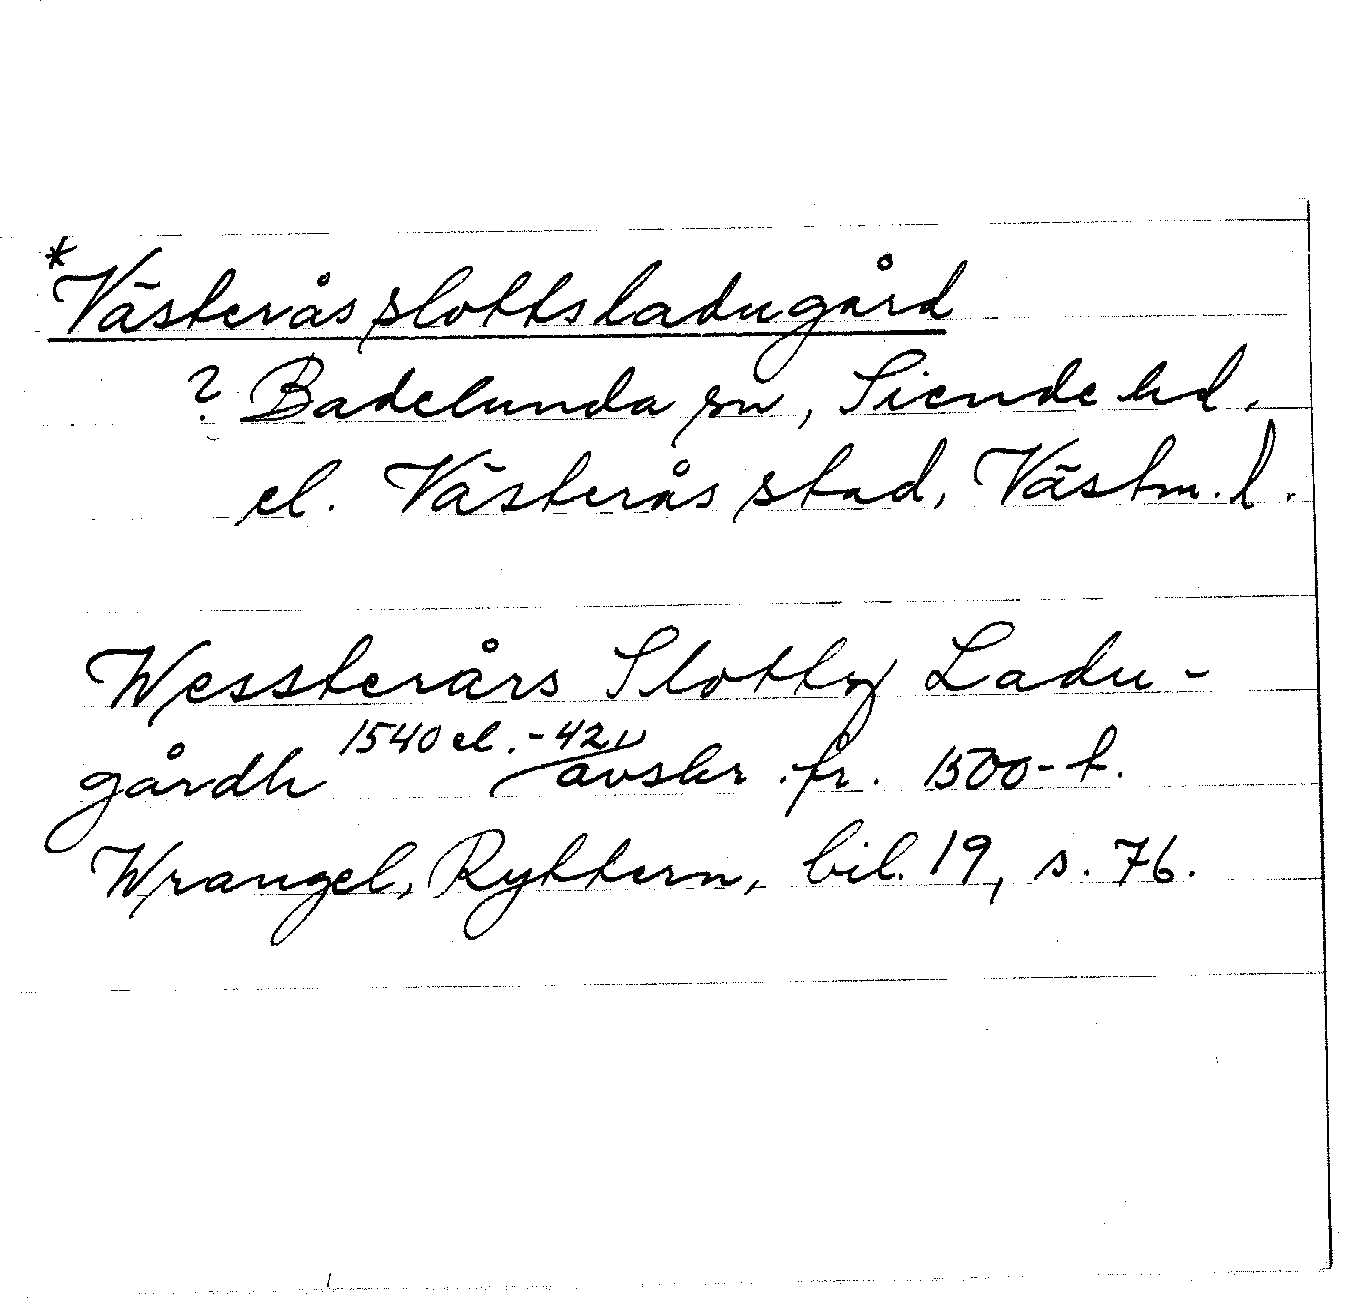 *Västerås slottsladugård
? Badelunda sn, Siende hd.
el. Västerås stad, Västm. l.
Wessterårs Slottz Ladu-
gårdh 1540 el. -42, avskr. fr. 1500-t.
Wrangel, Ryttern, bil. 19, s. 76.